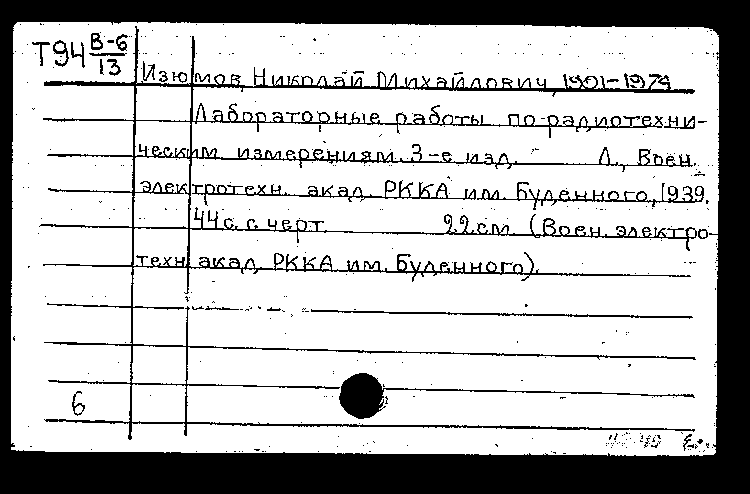 Т94 В-6
13
Изюмов, Николай Михайлович, 1901-1974
Лабораторные работы по радиотехни-
ческим измерениям. 3-е изд. Л., Воен.
электротехн. акад. РККА им. Буденного, 1939.
44 с. с черт. 22 см. (Воен. электро-
техн. акад. РККА им. Буденного).
6